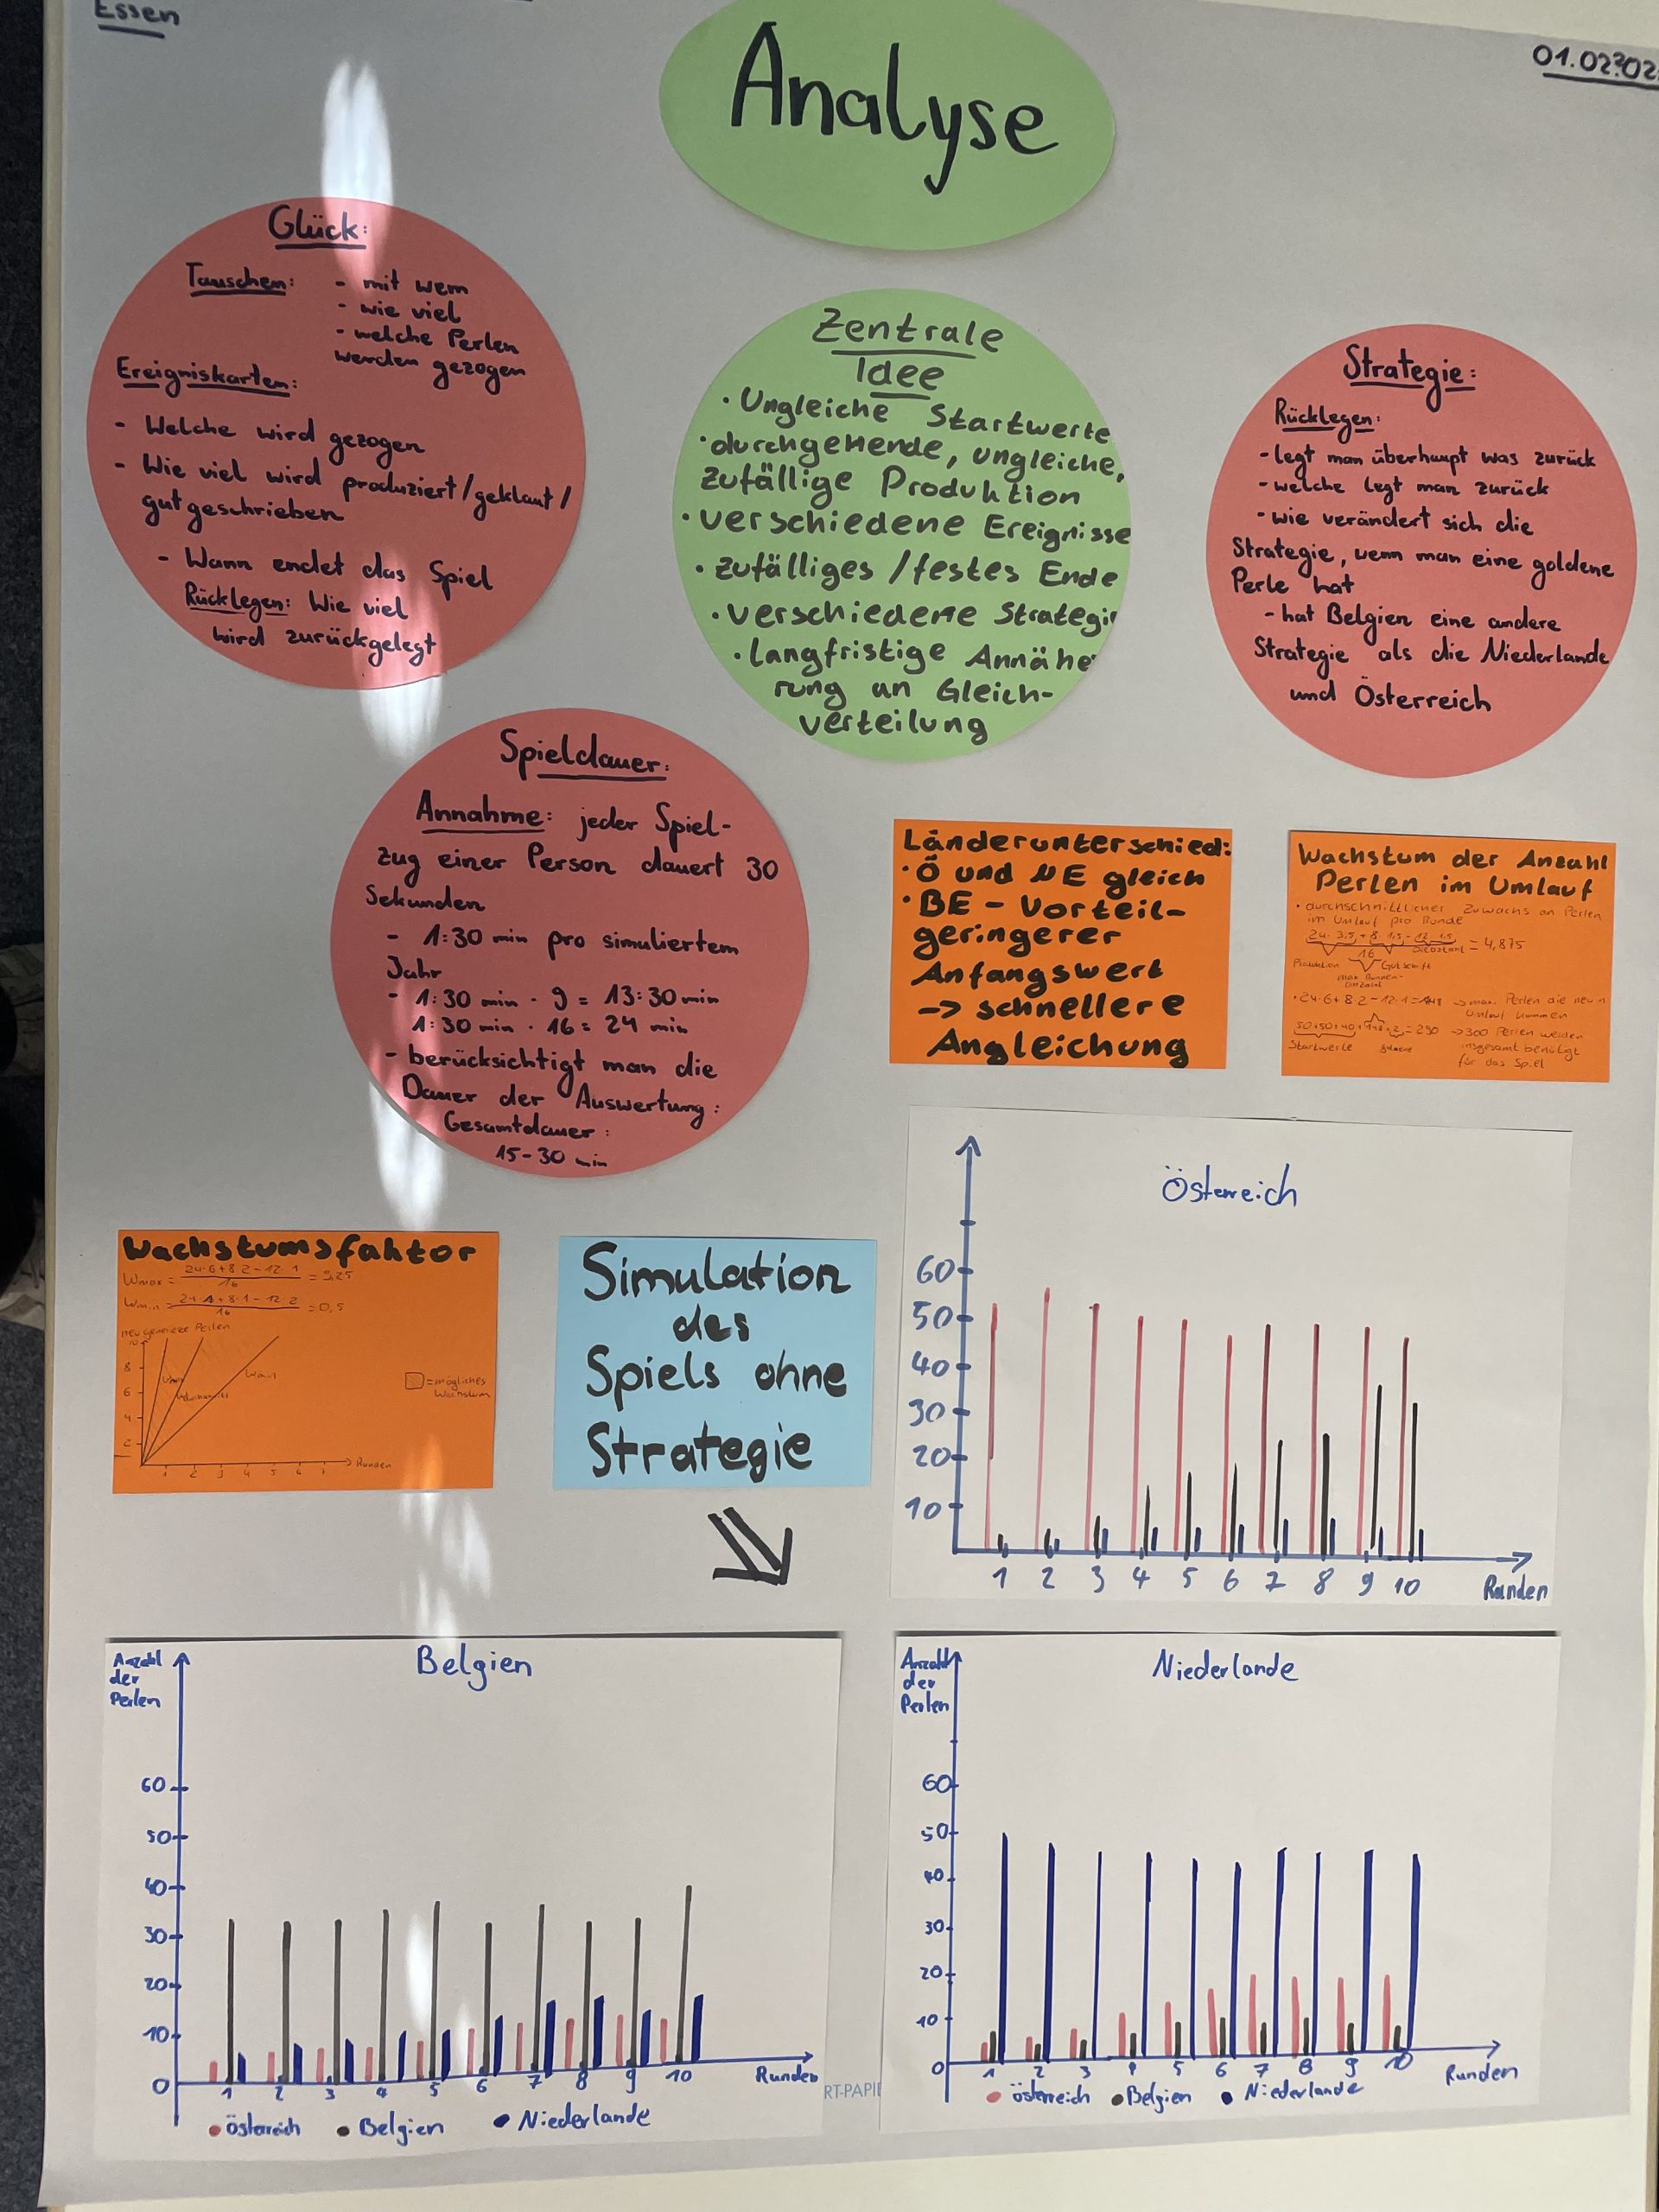 Essen
Analyse
Glück:
Tauschen: - mit wem
- wie viel
- welche Perlen
werden gezogen
Ereigniskarten:
- Welche wird gezogen
- Wie viel wird produziert/geklaut/
gutgeschrieben
- Wann endet das Spiel
Rücklegen: Wie viel
wird zurückgelegt
Zentrale
Idee
· Ungleiche Startwerte
· durchgehende, ungleiche,
zufällige Produktion
· verschiedene Ereignisse
· zufälliges / festes Ende
· verschiedene Strategi
· langfristige Annähe
rung an Gleich-
verteilung
Strategie:
Rücklegen:
- legt man überhaupt was zurück
- welche legt man zurück
- wie verändert sich die
Strategie, wenn man eine goldene
Perle hat
- hat Belgien eine andere
Strategie als die Niederlande
und Österreich
Spieldauer:
Annahme: jeder Spiel-
zug einer Person dauert 30
Sekunden
- 1:30 min pro simuliertem
Jahr
- 1:30 min · 9 = 13:30 min
1:30 min · 16 = 24 min
- berücksichtigt man die
Dauer der Auswertung:
Gesamtdauer:
15-30 min
Länderunterschied:
· Ö und NE gleich
· BE - Vorteil-
geringerer
Anfangswert
-> schnellere
Angleichung
Wachstum der Anzahl
Perlen im Umlauf
· durchschnittlicher Zuwachs an Perlen
im Umlauf pro Runde
24·3,5 + 8·1,5 - 12·1,5
16
= 4,875
Produktion Gutschrift Diebstahl
max. Runden-
anzahl
· 24·6+8·2-12·1=148 -> max. Perlen die neu in
Umlauf kommen
50+50+40+148+2 = 290 -> 300 Perlen werden
Startwerte insgesamt benötigt
für das Spiel
Wachstumsfaktor
Wmax = 24·6+8·2-12·1
16
= 9,25
Wmin = 24·1+8·1-12·2
16
= 0,5
neu generierte Perlen
10
8
6
4
2
1 2 3 4 5 6 7 Runden
= mögliches
Wachstum
Simulation
des
Spiels ohne
Strategie
Österreich
60
50
40
30
20
10
1 2 3 4 5 6 7 8 9 10
Runden
Anzahl
der
Perlen
Belgien
60
50
40
30
20
10
0
1 2 3 4 5 6 7 8 9 10
Runden
Österreich Belgien Niederlande
RT-PAPI
Anzahl
der
Perlen
Niederlande
60
50
40
30
20
10
0
1 2 3 4 5 6 7 8 9 10
Runden
Österreich Belgien Niederlande